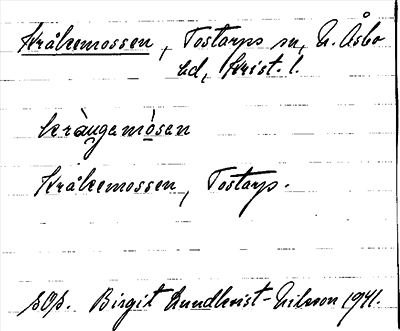 Kråkemossen, Tostarps sn, N. Åsbo
hd, Krist. l.
kràngemósen
Kråkemossen, Tostarp.
sOp. Birgit Lundkvist-Nilsson 1941.